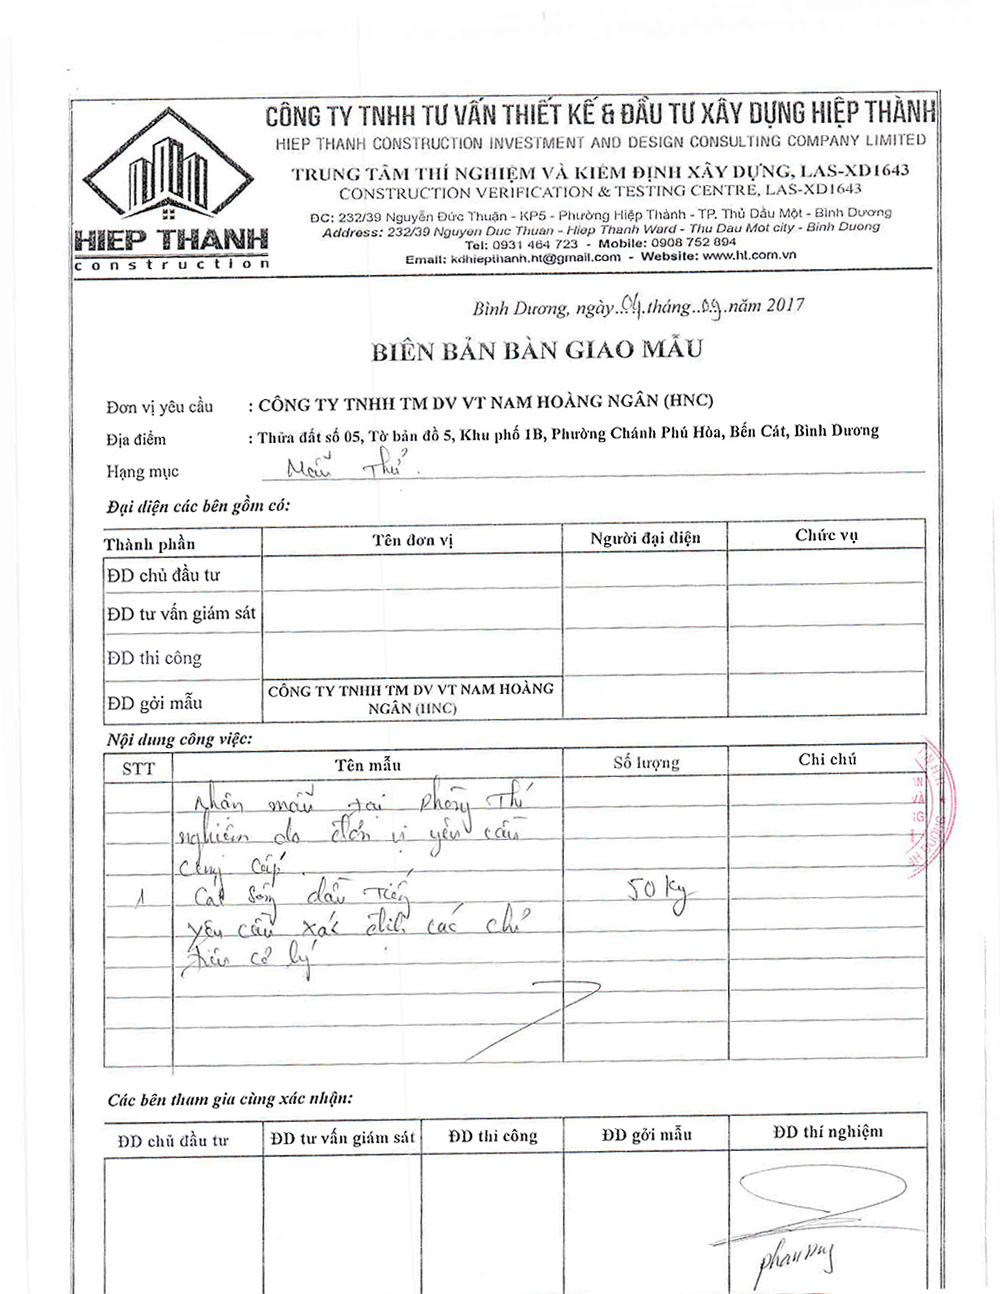 CÔNG TY TNHH TƯ VẤN THIẾT KẾ & ĐẦU TƯ XÂY DỰNG HIỆP THÀNH
HIEP THANH CONSTRUCTION INVESTMENT AND DESIGN CONSULTING COMPANY LIMITED
TRUNG TÂM THÍ NGHIỆM VÀ KIỂM ĐỊNH XÂY DỰNG, LAS-XD1643
CONSTRUCTION VERIFICATION & TESTING CENTRE, LAS-XD1643
ĐC: 232/39 Nguyễn Đức Thuận - KP5 - Phường Hiệp Thành - TP. Thủ Dầu Một - Bình Dương
Address: 232/39 Nguyen Duc Thuan - Hiep Thanh Ward - Thu Dau Mot city - Binh Duong
Tel: 0931 464 723 - Mobile: 0908 752 894
Email: kdhiepthanh.ht@gmail.com - Website: www.ht.com.vn
HIEP THANH
construction
Bình Dương, ngày..04.tháng..09.năm 2017
BIÊN BẢN BÀN GIAO MẪU
Đơn vị yêu cầu : CÔNG TY TNHH TM DV VT NAM HOÀNG NGÂN (HNC)
Địa điểm : Thửa đất số 05, Tờ bản đồ 5, Khu phố 1B, Phường Chánh Phú Hòa, Bến Cát, Bình Dương
Hạng mục Mẫu Thử.
Đại diện các bên gồm có:
Thành phần Tên đơn vị Người đại diện Chức vụ
ĐD chủ đầu tư
ĐD tư vấn giám sát
ĐD thi công
ĐD gởi mẫu CÔNG TY TNHH TM DV VT NAM HOÀNG
NGÂN (HNC)
Nội dung công việc:
STT Tên mẫu Số lượng Chi chú
Nhận mẫu tại phòng Thí
nghiệm do đơn vị yêu cầu
cung cấp.
1 Cát sông dầu Tiếng 50 Kg
Yêu cầu xác định các chỉ
tiêu cơ lý
Các bên tham gia cùng xác nhận:
ĐD chủ đầu tư ĐD tư vấn giám sát ĐD thi công ĐD gởi mẫu ĐD thí nghiệm